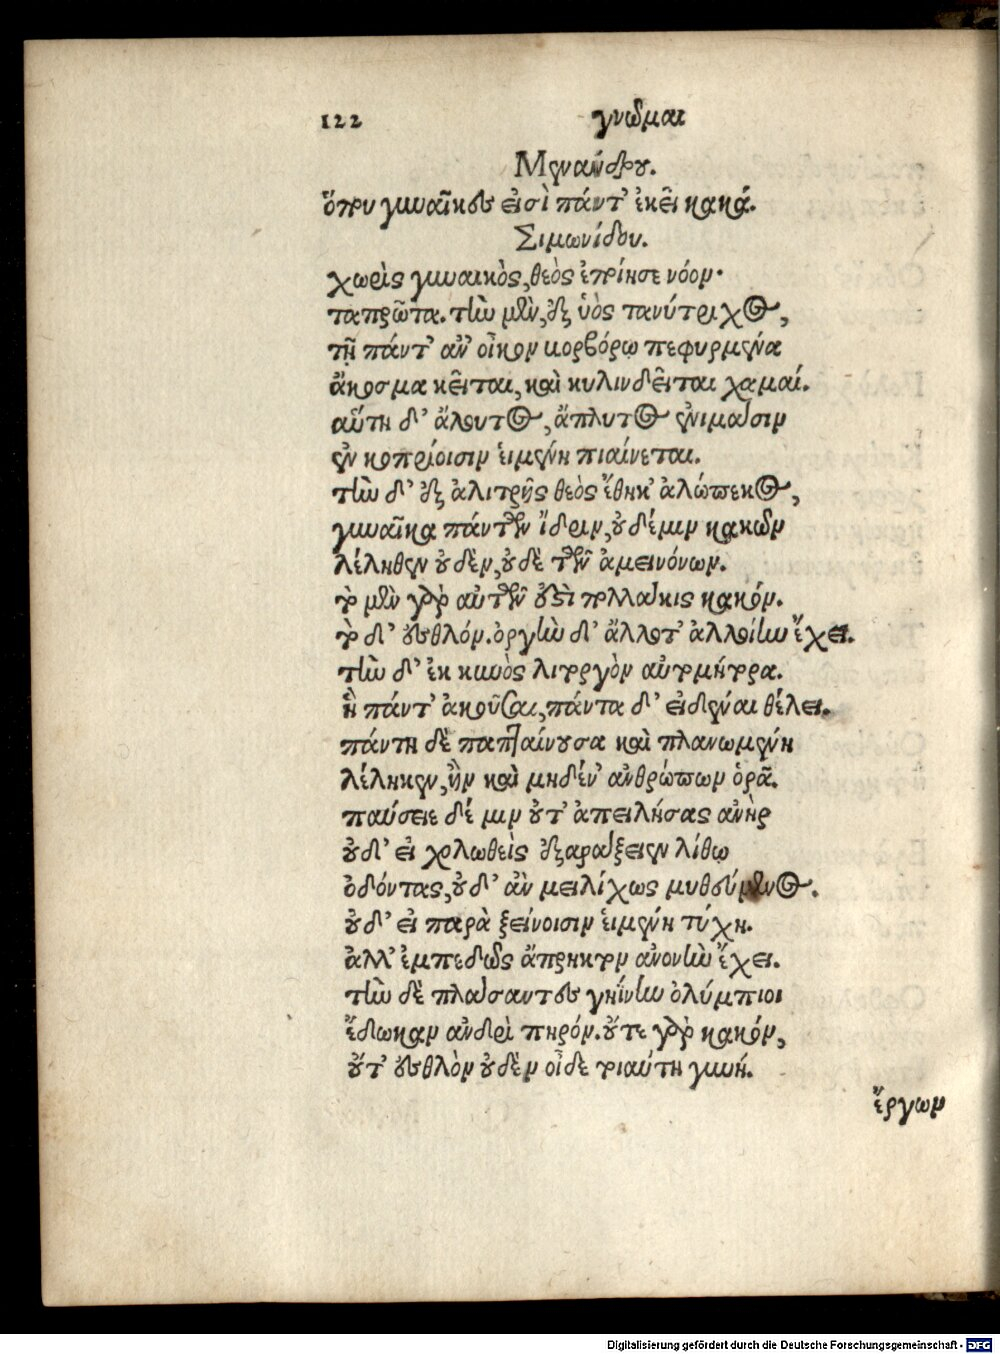 122 γνῶμαι
Μενάνδρου.
ὅπου γυναῖκες εἰσὶ πάντ' ἐκεῖ κακά.
Σιμωνίδου.
χωρὶς γυναικὸς, θεὸς ἐποίησε νόον·
ταπρῶτα. τὴν μὲν, ἐξ ὑὸς τανύτριχος,
τῇ πάντ' ἀν' οἶκον βορβόρῳ πεφυρμένα
ἄκοσμα κεῖται, καὶ κυλινδεῖται χαμαί.
αὕτη δ' ἄλουτος, ἄπλυτος ἐνιμασιν
ἐν κοπρίοισιν ἡιμένη πιαίνεται.
τὴν δ' ἐξ ἀλιτρῆς θεὸς ἔθηκ' ἀλώπεκος,
γυναῖκα πάντων ἴδριν, οὐδέμιν κακῶν
λέληθεν οὐδὲν, οὐδὲ τῶν ἀμεινόνων.
τὸ μὲν γὰρ αὐτῶν ἐστὶ πολλάκις κακόν.
τὸ δ' ἐσθλόν. ὀργὴν δ' ἄλλοτ' ἀλλοίην ἔχει.
τὴν δ' ἐκ κυνὸς λιτοργὸν αὐτομήτορα.
ἣ πάντ' ἀκοῦσαι, πάντα δ' εἰδέναι θέλει.
πάντη δὲ παπταίνουσα καὶ πλανωμένη
λέληκεν, ἢν καὶ μηδέν' ἀνθρώπων ὁρᾷ.
παύσειε δέ μιν οὔτ' ἀπειλήσας ἀνὴρ
οὐδ' εἰ χολωθεὶς ἐξαράξειεν λίθῳ
ὀδόντας, οὐδ' ἂν μειλίχως μυθεύμενος.
οὐδ' εἰ παρὰ ξείνοισιν ἡιμένη τύχη.
ἀλλ' ἐμπεδῶς ἄπρηκτον ἀνονὴν ἔχει.
τὴν δὲ πλάσαντες γηΐνην ὀλύμπιοι
ἔδωκαν ἀνδρὶ πηρόν. οὔτε γὰρ κακόν,
οὔτ' ἐσθλὸν οὐδὲν οἶδε τοιαύτη γυνή.
ἔργων
Digitalisierung gefördert durch die Deutsche Forschungsgemeinschaft - DFG